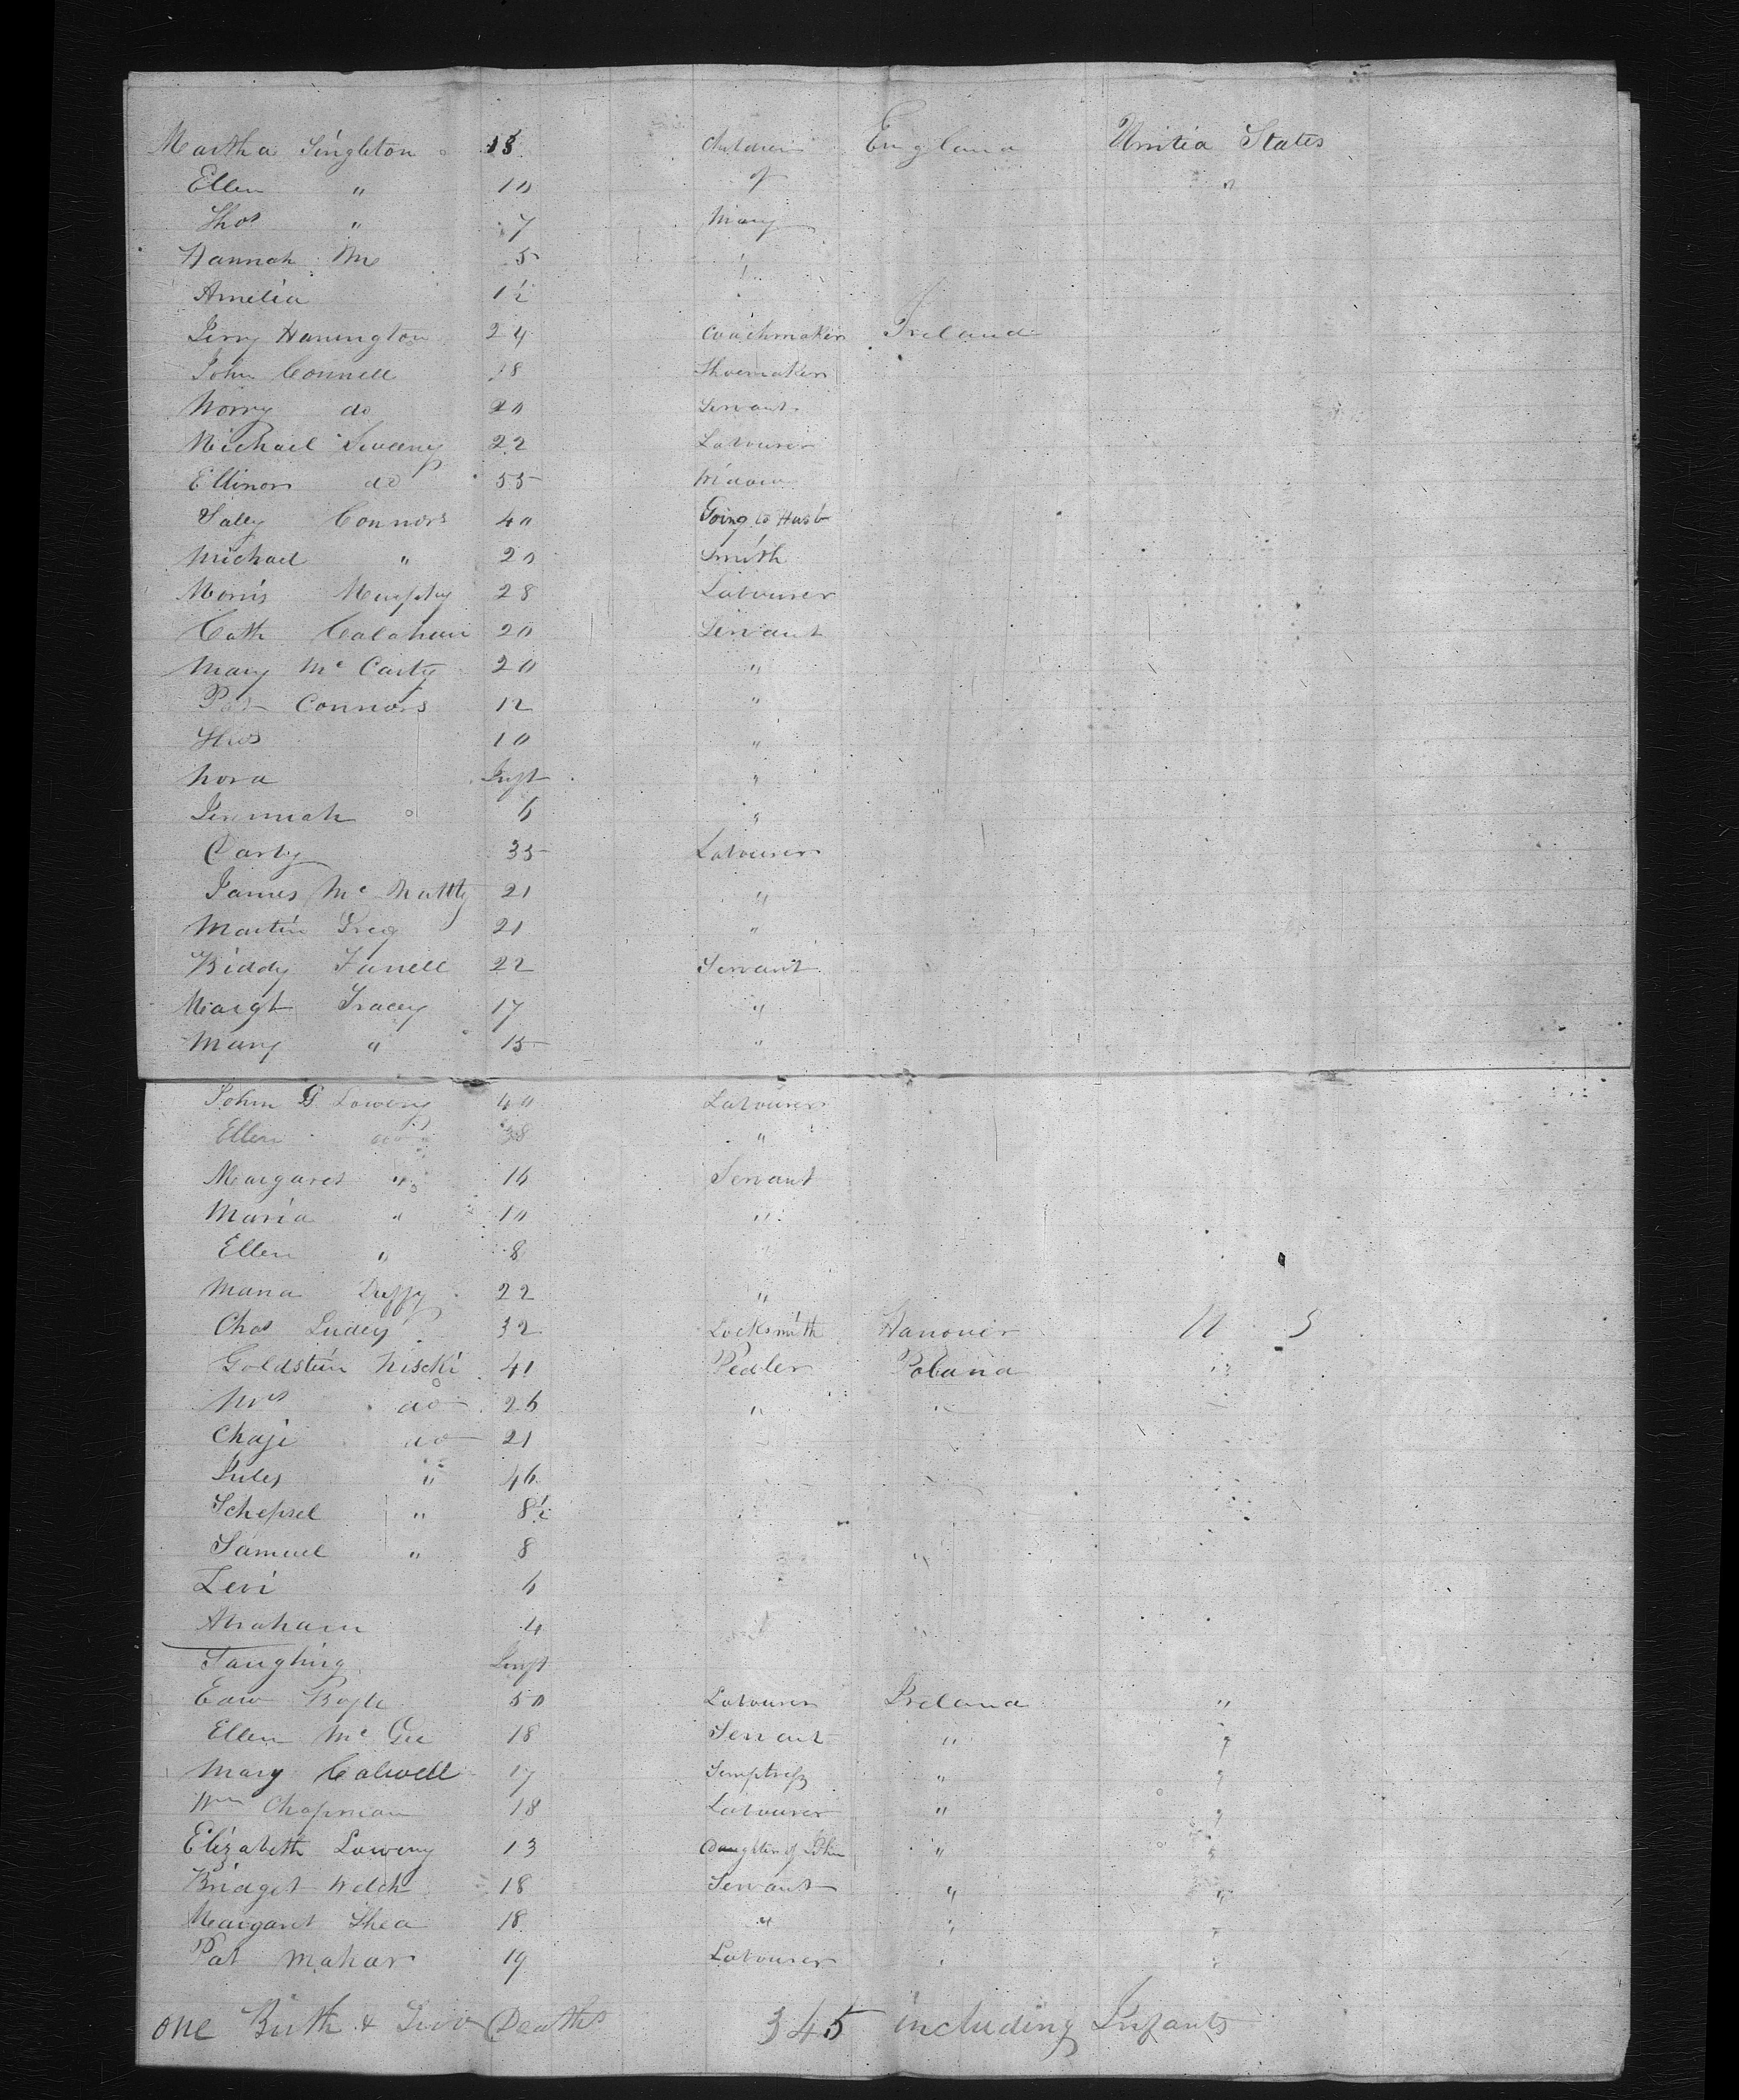 Martha Singleton 13 Children England United States
Ellen " 10 of "
Thos " 7 Mary
Hannah Me 5 "
Amelia 1½
Jerry Harrington 24 Coachmaker Ireland
John Connell 18 Shoemaker
Norry do 20 Servant
Michael Sweeny 22 Labourer
Ellinor do 55 Widow
Connors 40 Going to Husb
Michael " 20 Smith
Morris Murphy 28 Labourer
Cath Calahan 20 Servant
Mary McCarty 20 "
Pat Connors 12 "
Thos 10 "
Nora Inft "
Jeremiah 6 "
Carty 35 Labourer
James Mc Natty 21 "
Martin 21 "
Biddy Farrell 22 Servant
Margt Tracey 17 "
Mary " 15 "
John G Lowery 40 Labourer
Ellen do 38 "
Margaret " 16 Servant
Maria " 10 "
Ellen " 8
Maria Duffy 22 "
Chas Ludey 32 Locksmith Hanover U S
Goldstein Nischi 41 Pedler Poland "
Mrs do 26 " "
Chaji do 21
Jules " 46
Schepsel " 8½
Samuel " 8 "
Levi 6
Abraham 4 "
Inft
Edw Boyle 50 Labourer Ireland "
Ellen McGee 18 Servant " "
Mary Calwell 17 Semptress " "
Wm Chapman 18 Labourer " "
Elizabeth Lowery 13 Daughter of John " "
Bridget Welch 18 Servant " "
Margaret Shea 18 " " "
Pat Mahar 19 Labourer " "
One Birth & Two Deaths 345 including Infants